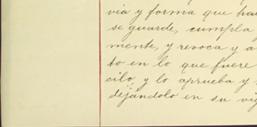 via y forma que ha
se guarde, cumpla y
mente, y revoca y a
to en lo que fuere
cilo, y lo aprueba y
dejándolo en su vig